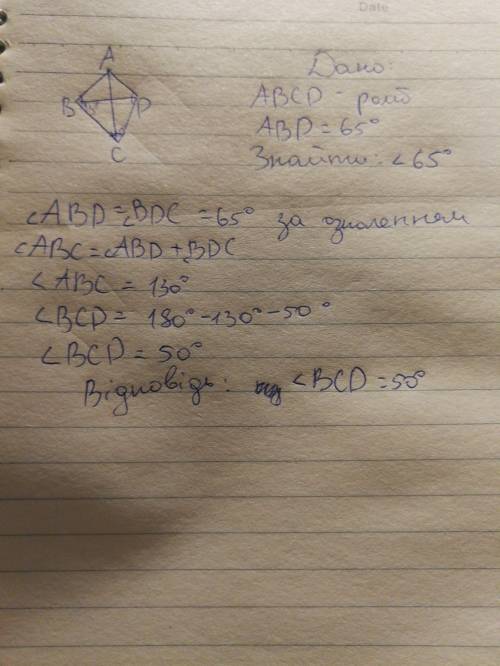 Date
A
B
D
C
Дано:
ABCD - ромб
ABD = 65°
Знайти: ∠65°
∠ABD = ∠BDC = 65° за означенням
∠ABC = ∠ABD + ∠BDC
∠ABC = 130°
∠BCD = 180° - 130° - 50°
∠BCD = 50°
Відповідь: ∠BCD = 50°